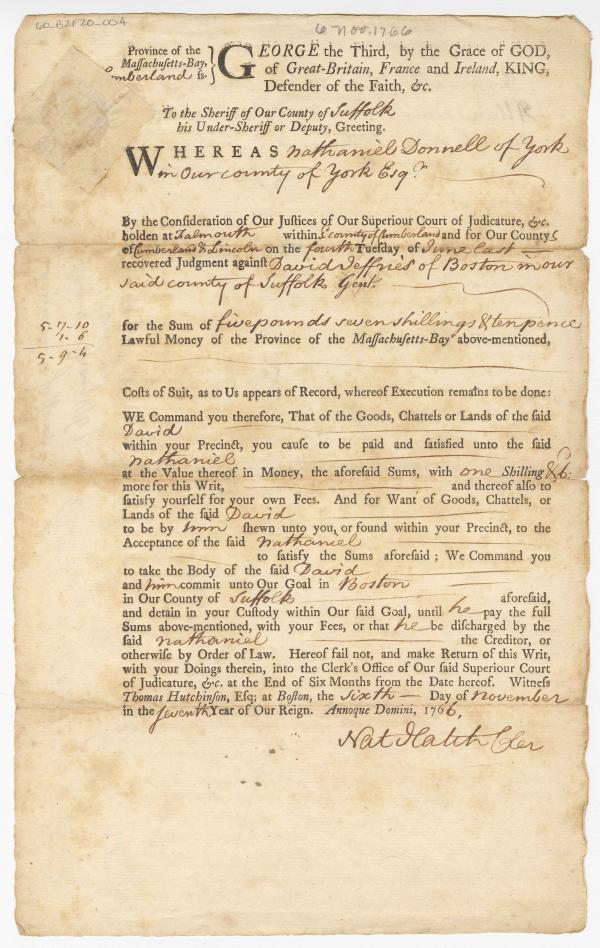 60_B2F20_004
6 Nov. 1766
Province of the
Massachusetts-Bay,
Cumberland ss.
GEORGE the Third, by the Grace of GOD,
of Great-Britain, France and Ireland, KING,
Defender of the Faith, &c.
To the Sheriff of Our County of Suffolk
his Under-Sheriff or Deputy, Greeting.
WHEREAS Nathaniel Donnell of York
in Our county of York Esqr.
By the Consideration of Our Justices of Our Superiour Court of Judicature, &c.
holden at Falmouth within ye county of Cumberland and for Our Countys
of Cumberland & Lincoln on the fourth Tuesday of June last
recovered Judgment against David Jeffries of Boston in our
said county of Suffolk Gent.
5-7-10
1-6
5-9-4
for the Sum of five pounds seven shillings & ten pence
Lawful Money of the Province of the Massachusetts-Bay above-mentioned,
Costs of Suit, as to Us appears of Record, whereof Execution remains to be done:
WE Command you therefore, That of the Goods, Chattels or Lands of the said
David
within your Precinct, you cause to be paid and satisfied unto the said
Nathaniel
at the Value thereof in Money, the aforesaid Sums, with one Shilling & 6d.
more for this Writ, and thereof also to
satisfy yourself for your own Fees. And for Want of Goods, Chattels, or
Lands of the said David
to be by him shewn unto you, or found within your Precinct, to the
Acceptance of the said Nathaniel
to satisfy the Sums aforesaid; We Command you
to take the Body of the said David
and him commit unto Our Goal in Boston
in Our County of Suffolk aforesaid,
and detain in your Custody within Our said Goal, until he pay the full
Sums above-mentioned, with your Fees, or that he be discharged by the
said Nathaniel the Creditor, or
otherwise by Order of Law. Hereof fail not, and make Return of this Writ,
with your Doings therein, into the Clerk's Office of Our said Superiour Court
of Judicature, &c. at the End of Six Months from the Date hereof. Witness
Thomas Hutchinson, Esq; at Boston, the Sixth Day of November
in the Seventh Year of Our Reign. Annoque Domini, 1766.
Nat Hatch Cler